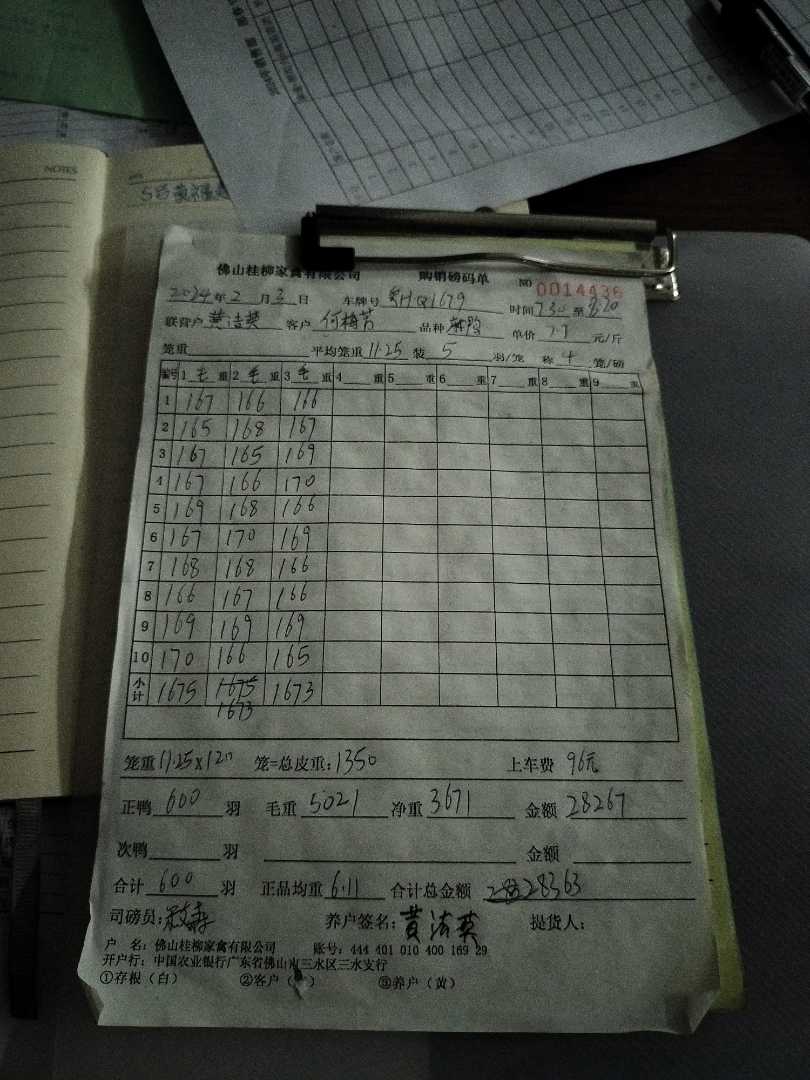 NOTES
佛山桂柳家禽有限公司 购销磅码单 NO 0014436
2024年2月3日 车牌号 粤HQ1679 时间7:30至8:20
联营户 黄洁英 客户 何梅芳 品种 单价 7.7 元/斤
笼重 平均笼重 11.25 装 5 羽/笼 称 4 笼/磅
编号 1 毛 重 2 毛 重 3 毛 重 4 重 5 重 6 重 7 重 8 重 9 重
1 167 166 166
2 165 168 167
3 167 165 169
4 167 166 170
5 169 168 166
6 167 170 169
7 168 168 166
8 166 167 166
9 169 169 169
10 170 166 165
小计 1675 1675 1673
1673
笼重 11.25×120 笼=总皮重:1350 上车费 96元
正鸭 600 羽 毛重 5021 净重 3671 金额 28267
次鸭 羽 金额
合计 600 羽 正品均重 6.11 合计总金额 28363
司磅员: 养户签名:黄洁英 提货人:
户 名:佛山桂柳家禽有限公司 账号:444 401 010 400 169 29
开户行:中国农业银行广东省佛山市三水区三水支行
①存根(白) ②客户( ) ③养户(黄)